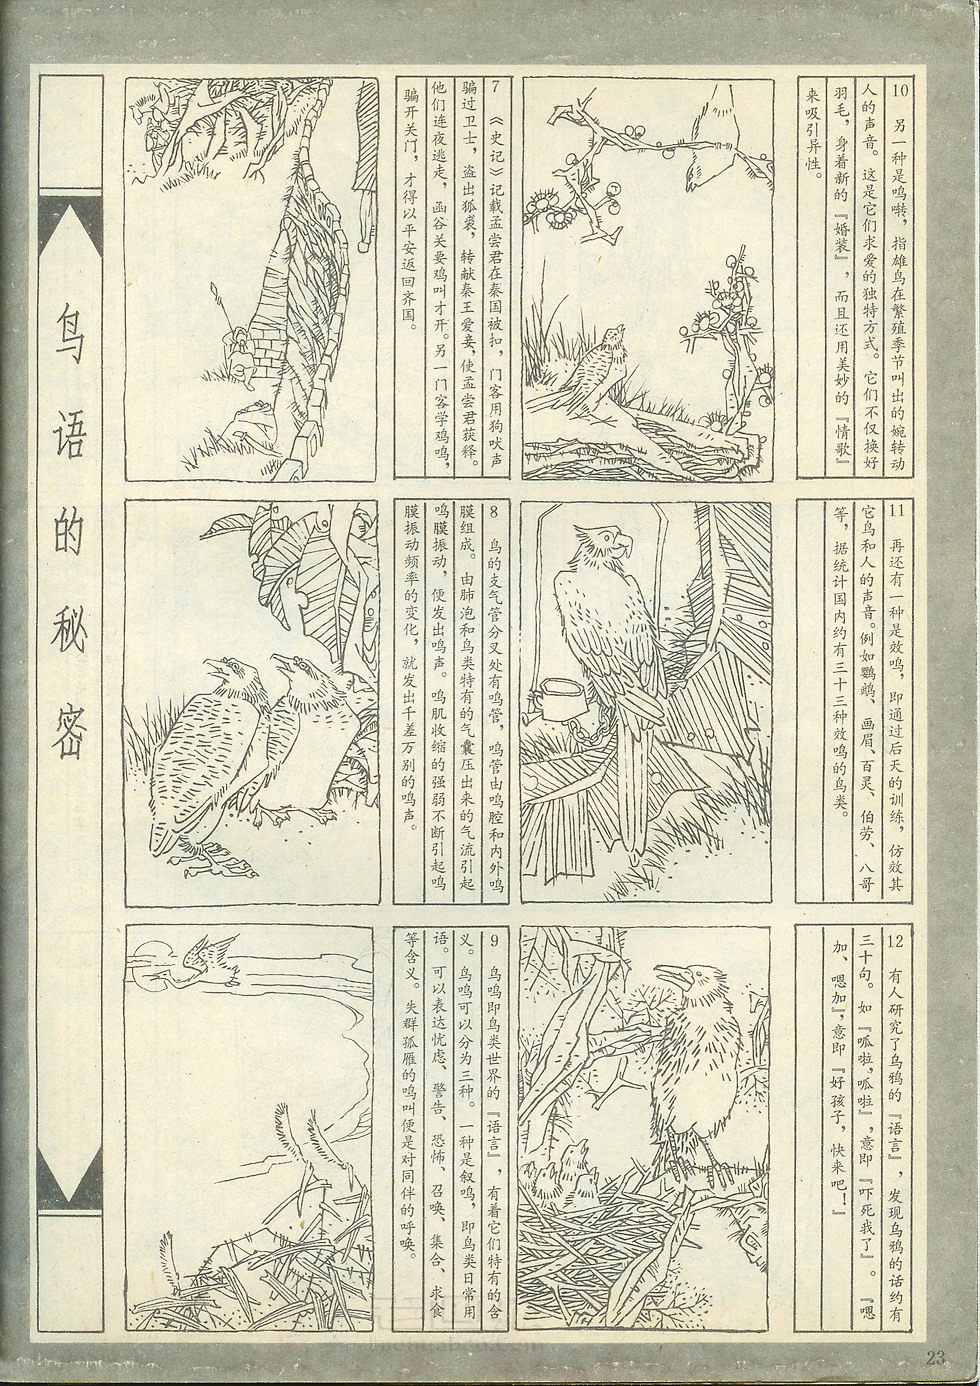 鸟语的秘密
7 《史记》记载孟尝君在秦国被扣，门客用狗吠声
骗过卫士，盗出狐裘，转献秦王爱妾，使孟尝君获释。
他们连夜逃走，函谷关要鸡叫才开。另一门客学鸡鸣，
骗开关门，才得以平安返回齐国。
8 鸟的支气管分叉处有鸣管，鸣管由鸣腔和内外鸣
膜组成。由肺泡和鸟类特有的气囊压出来的气流引起
鸣膜振动，便发出鸣声。鸣肌收缩的强弱不断引起鸣
膜振动频率的变化，就发出千差万别的鸣声。
9 鸟鸣即鸟类世界的『语言』，有着它们特有的含
义。鸟鸣可以分为三种。一种是叙鸣，即鸟类日常用
语。可以表达忧虑、警告、恐怖、召唤、集合、求食
等含义。失群孤雁的鸣叫便是对同伴的呼唤。
10 另一种是鸣啭，指雄鸟在繁殖季节叫出的婉转动
人的声音。这是它们求爱的独特方式。它们不仅换好
羽毛，身着新的『婚装』，而且还用美妙的『情歌』
来吸引异性。
11 再还有一种是效鸣，即通过后天的训练，仿效其
它鸟和人的声音。例如鹦鹉、画眉、百灵、伯劳、八哥
等，据统计国内约有三十三种效鸣的鸟类。
12 有人研究了乌鸦的『语言』，发现乌鸦的话约有
三十句。如『呱啦，呱啦』，意即『吓死我了』。『嗯
加、嗯加』，意即『好孩子，快来吧！』
23